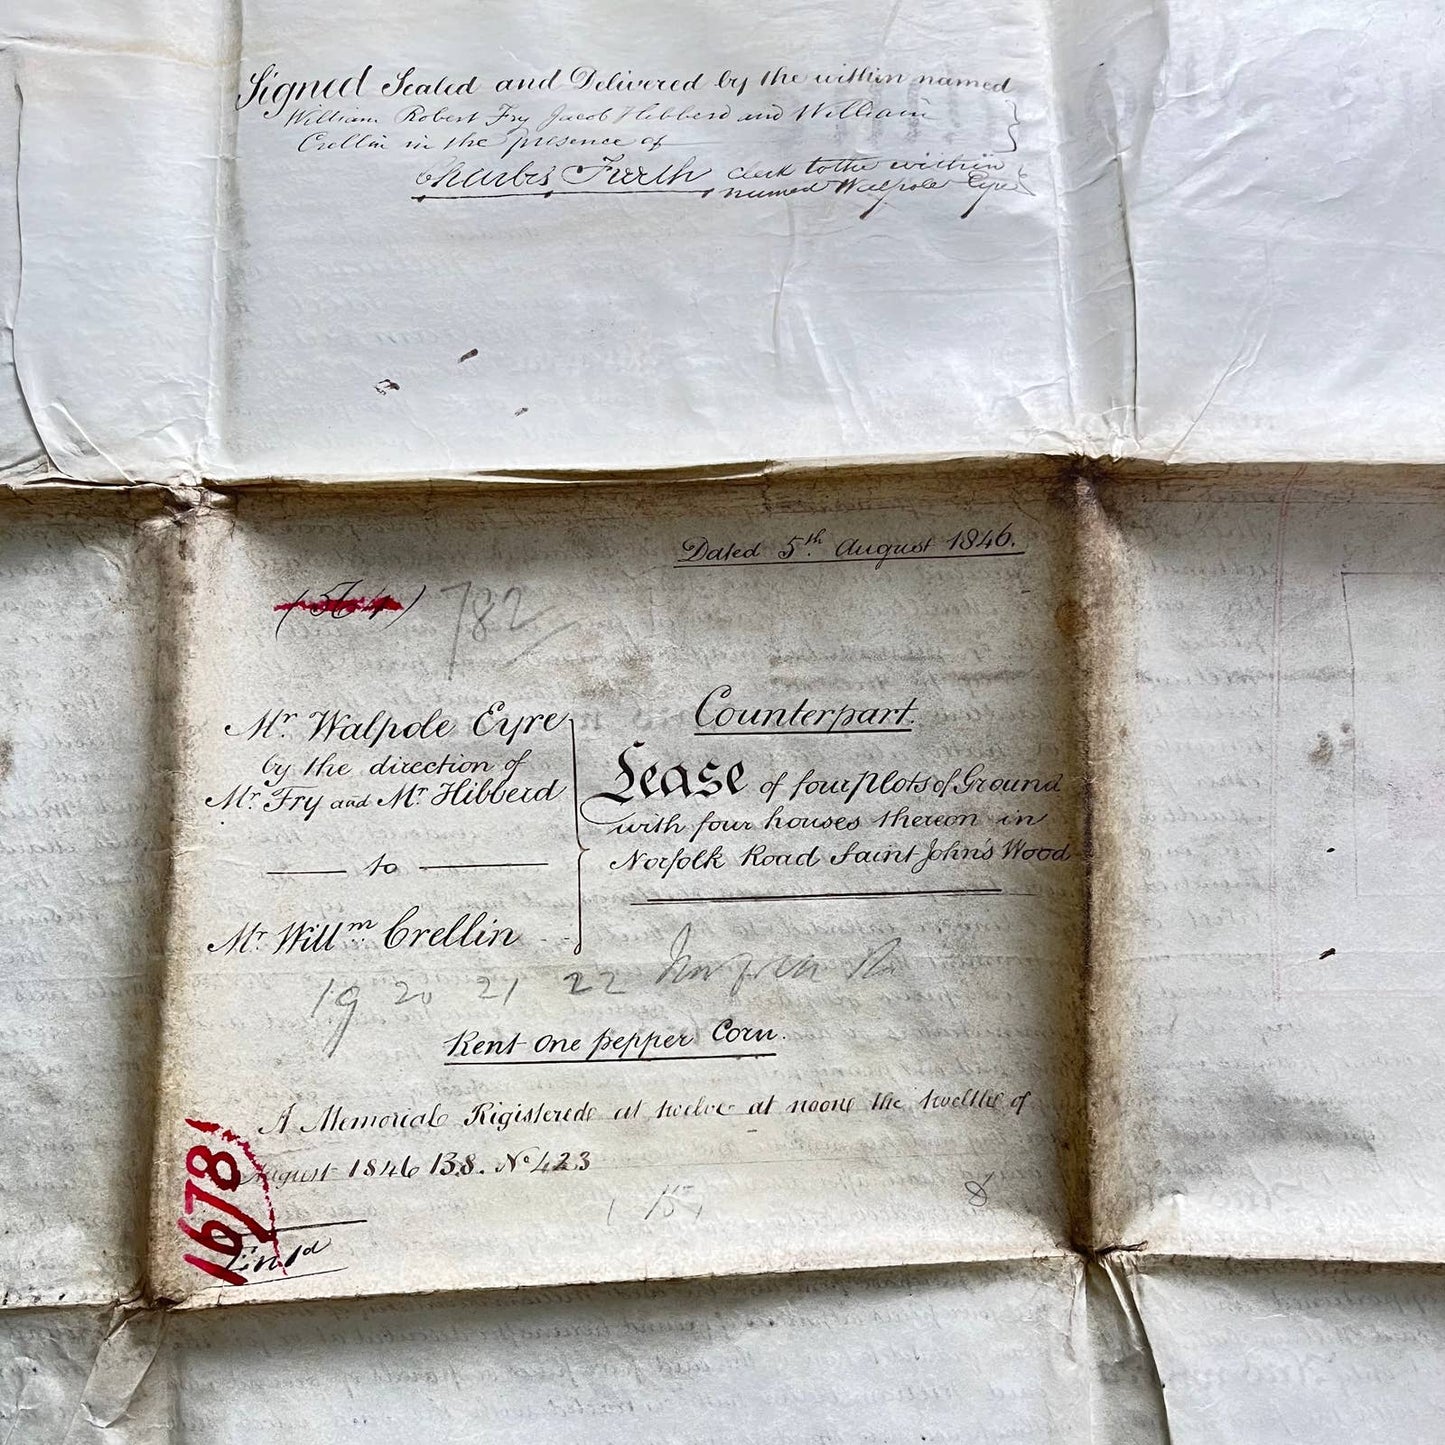 Signed Sealed and Delivered by the within named
William Robert Fry Jacob Hibberd and William
Crellin in the presence of
Charles Furth clerk to the within
named Walpole Eyre
Dated 5th August 1846.
782
Mr Walpole Eyre
by the direction of
Mr Fry and Mr Hibberd
to
Mr Willm Crellin
Counterpart.
Lease of four plots of Ground
with four houses thereon in
Norfolk Road Saint John's Wood
19 20 21 22
Rent One pepper Corn.
A Memorial Registered at twelve at noone the twelth of
August 1846 B.8. No 423
1678
Entd